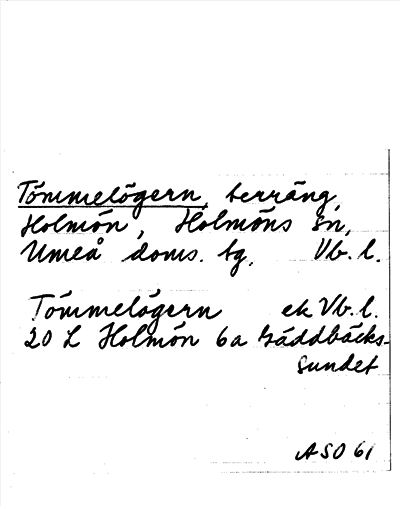 Tömmelögern, terräng,
Holmön, Holmöns sn,
Umeå doms. tg, Vb. l.
Tömmelögern ek Vb. l.
20 L Holmön 6a Gäddbäcks-
sundet
ASO 61